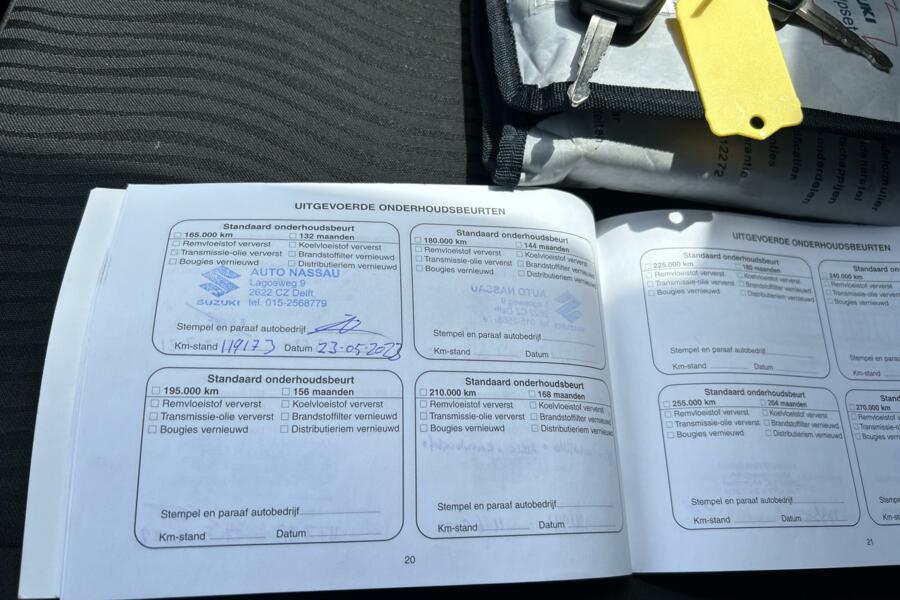 UITGEVOERDE ONDERHOUDSBEURTEN
Standaard onderhoudsbeurt
165.000 km 132 maanden
Remvloeistof ververst Koelvloeistof ververst
Transmissie-olie ververst Brandstoffilter vernieuwd
Bougies vernieuwd Distributieriem vernieuwd
AUTO NASSAU
Lagosweg 9
2622 CZ Delft
SUZUKI tel. 015-2568779
Stempel en paraaf autobedrijf
Km-stand 119173 Datum 23-05-2023
Standaard onderhoudsbeurt
180.000 km 144 maanden
Remvloeistof ververst Koelvloeistof ververst
Transmissie-olie ververst Brandstoffilter vernieuwd
Bougies vernieuwd Distributieriem vernieuwd
AUTO NASSAU
Stempel en paraaf autobedrijf
Km-stand Datum
Standaard onderhoudsbeurt
195.000 km 156 maanden
Remvloeistof ververst Koelvloeistof ververst
Transmissie-olie ververst Brandstoffilter vernieuwd
Bougies vernieuwd Distributieriem vernieuwd
Stempel en paraaf autobedrijf
Km-stand Datum
Standaard onderhoudsbeurt
210.000 km 168 maanden
Remvloeistof ververst Koelvloeistof ververst
Transmissie-olie ververst Brandstoffilter vernieuwd
Bougies vernieuwd Distributieriem vernieuwd
Stempel en paraaf autobedrijf
Km-stand Datum
20
UITGEVOERDE ONDERHOUDSBEURTEN
Standaard onderhoudsbeurt
225.000 km 180 maanden
Remvloeistof ververst Koelvloeistof ververst
Transmissie-olie ververst Brandstoffilter vernieuwd
Bougies vernieuwd Distributieriem vernieuwd
Stempel en paraaf autobedrijf
Km-stand Datum
240.000 km
Standaard onderhoudsbeurt
255.000 km 204 maanden
Remvloeistof ververst Koelvloeistof ververst
Transmissie-olie ververst Brandstoffilter vernieuwd
Bougies vernieuwd Distributieriem vernieuwd
Stempel en paraaf autobedrijf
Km-stand Datum
270.000 km
21